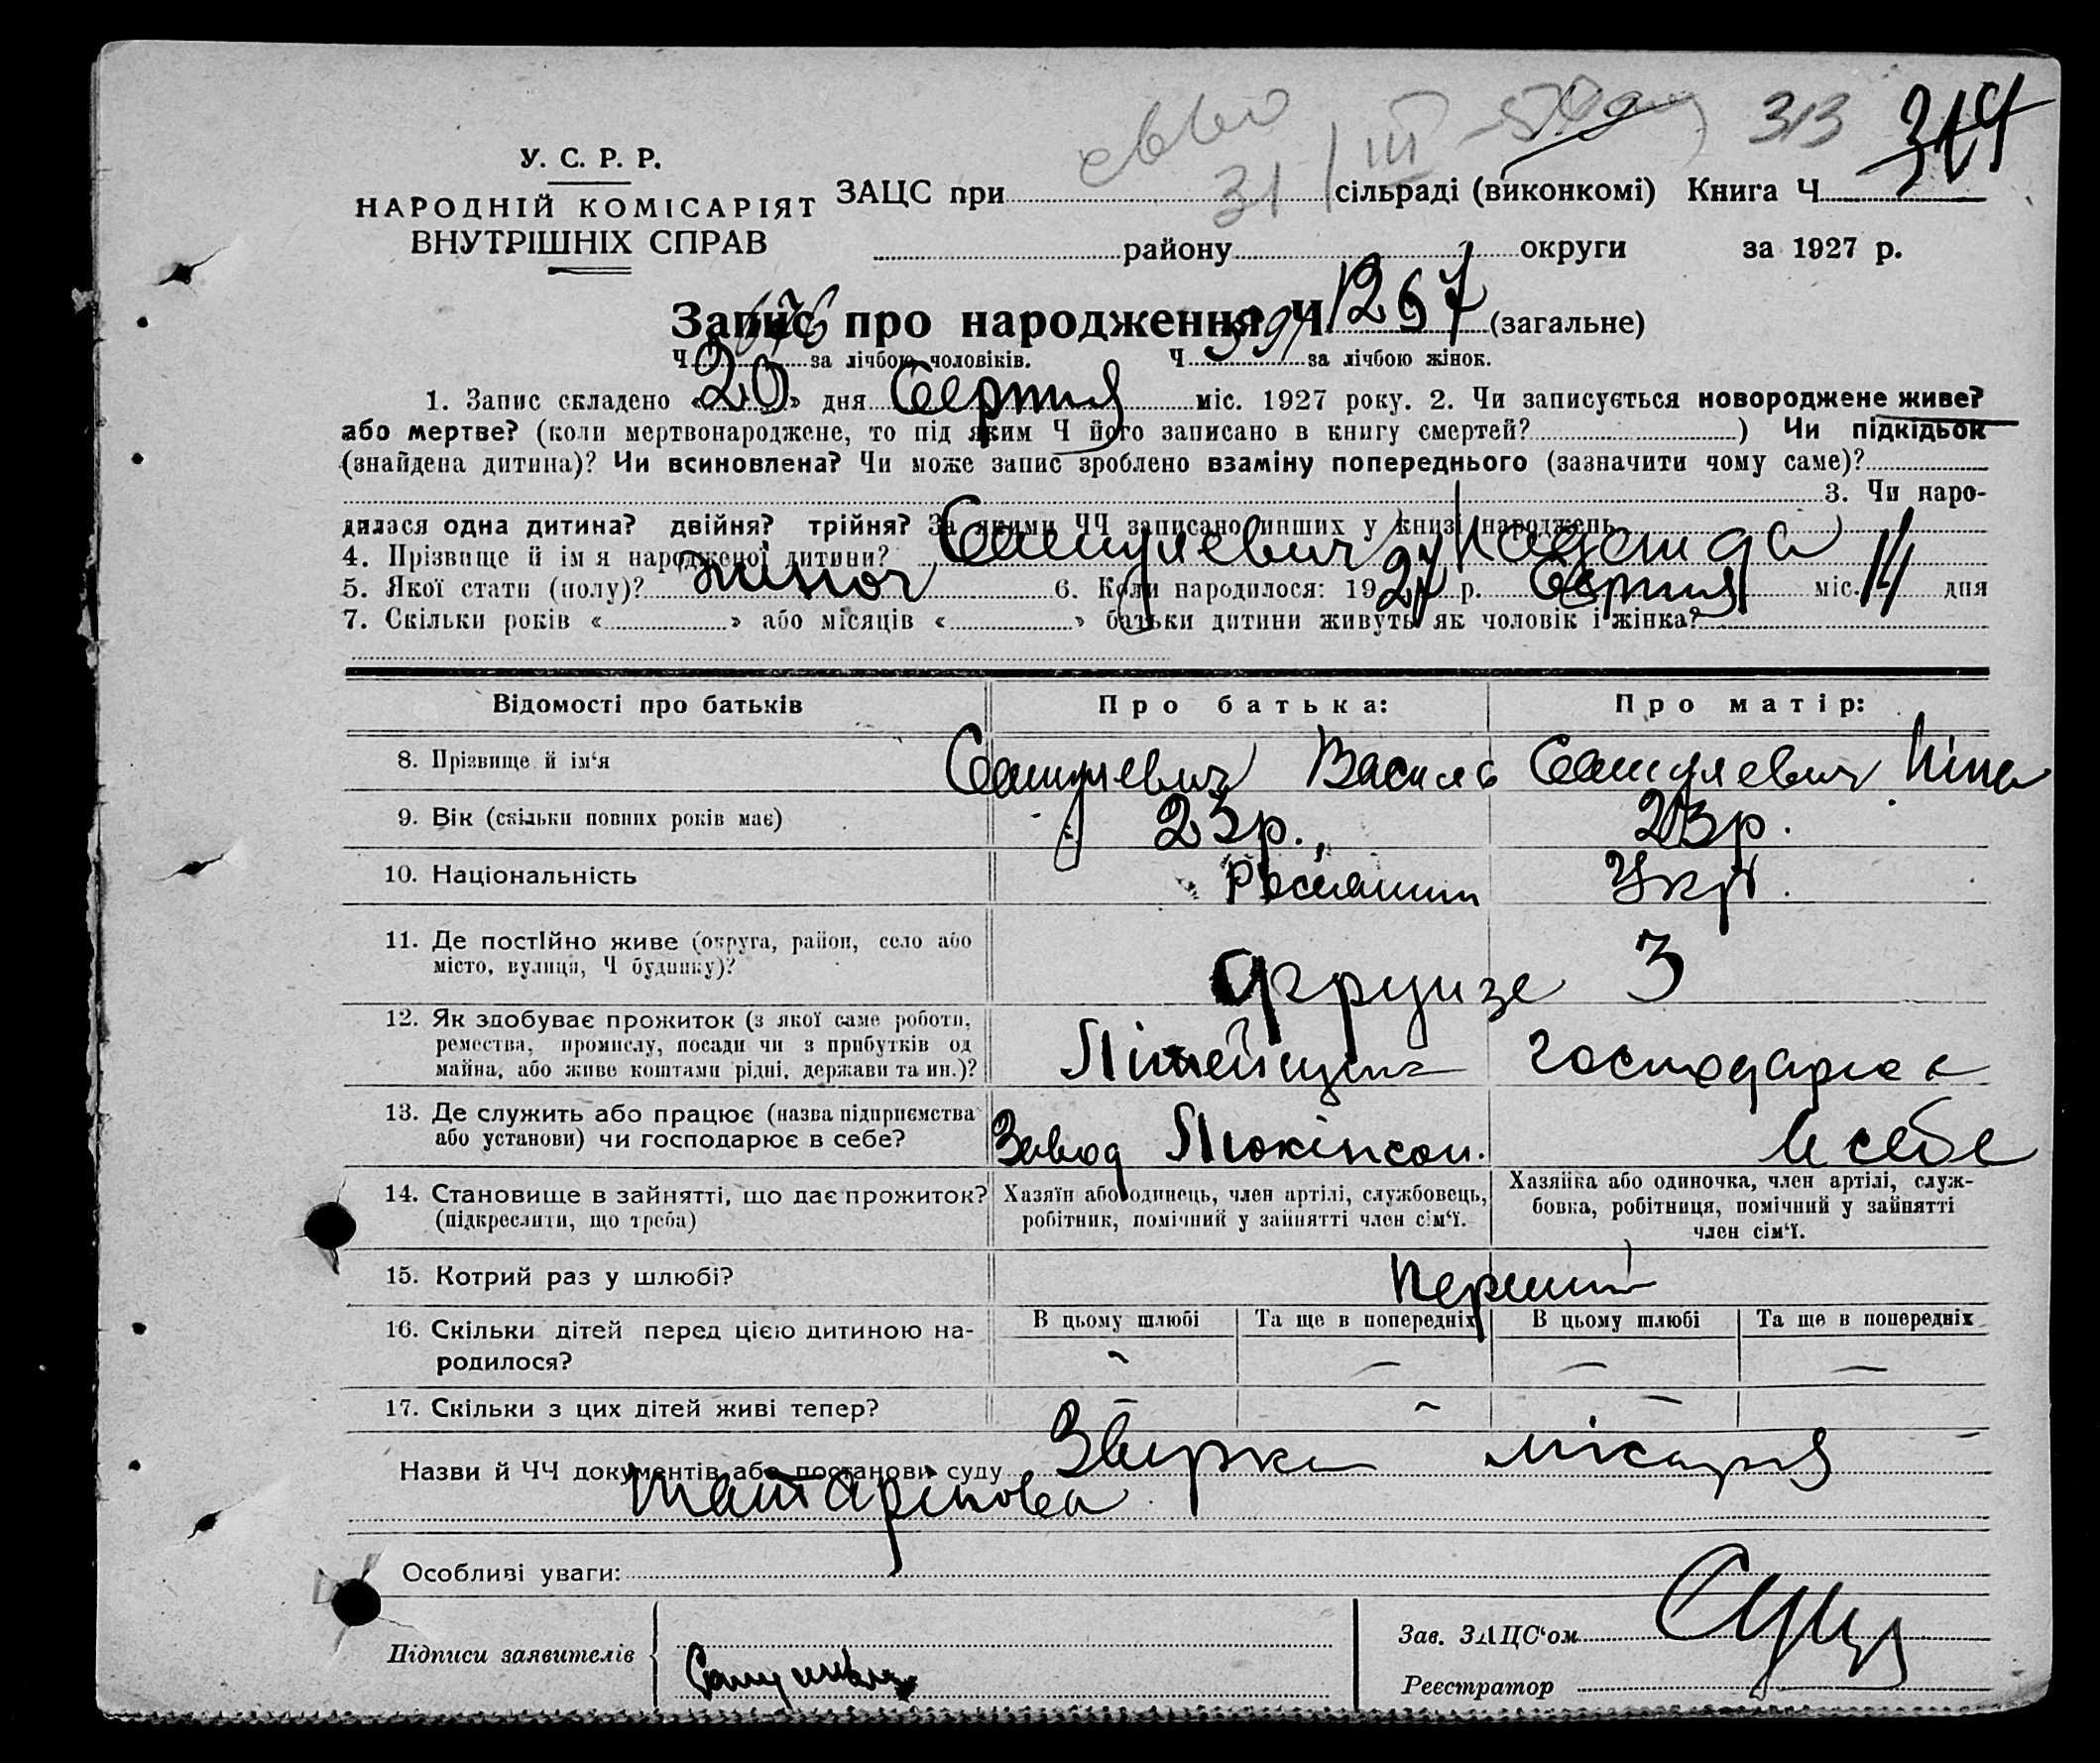 31/III 313 314
У. С. Р. Р.
НАРОДНІЙ КОМІСАРІЯТ
ВНУТРІШНІХ СПРАВ
ЗАЦС при сільраді (виконкомі) Книга Ч
району округи за 1927 р.
Запис про народження Ч 1267 (загальне)
Ч 676 за лічбою чоловіків. Ч 591 за лічбою жінок.
1. Запис складено «20» дня Серпня міс. 1927 року. 2. Чи записується новороджене живе?
або мертве? (коли мертвонароджене, то під яким Ч його записано в книгу смертей? ) Чи підкідьок
(знайдена дитина)? Чи всиновлена? Чи може запис зроблено взаміну попереднього (зазначити чому саме)?
3. Чи наро-
дилася одна дитина? двійня? трійня? За якими ЧЧ записано инших у книзі народжень
4. Прізвище й ім я народженої дитини? Сашулевич Надежда
5. Якої стати (полу)? жіноч 6. Коли народилося: 1927 р. Серпня міс. 14 дня
7. Скільки років « » або місяців « » батьки дитини живуть як чоловік і жінка?
Відомості про батьків Про батька: Про матір:
8. Прізвище й ім‘я Сашулевич Василь Сашулевич Ніна
9. Вік (скільки повних років має) 23р. 23р.
10. Національність Росіянин Укр.
11. Де постійно живе (округа, район, село або
місто, вулиця, Ч будинку)? Фрунзе 3
12. Як здобуває прожиток (з якої саме роботи,
ремества, промислу, посади чи з прибутків од
майна, або живе коштами рідні, держави та ин.)? Літейщик господарює
13. Де служить або працює (назва підприємства
або установи) чи господарює в себе? Завод в себе
14. Становище в зайнятті, що дає прожиток?
(підкреслити, що треба)
Хазяїн або одинець, член артілі, службовець,
робітник, помічний у зайнятті член сім‘ї.
Хазяйка або одиночка, член артілі, служ-
бовка, робітниця, помічний у зайнятті
член сім‘ї.
15. Котрий раз у шлюбі? Перший
16. Скільки дітей перед цією дитиною на-
родилося?
В цьому шлюбі Та ще в попередніх В цьому шлюбі Та ще в попередніх
– – – –
17. Скільки з цих дітей живі тепер? – – – –
Назви й ЧЧ документів або постанови суду лікаря
Татарінова
Особливі уваги:
Підписи заявителів
Зав. ЗАЦС‘ом
Реєстратор